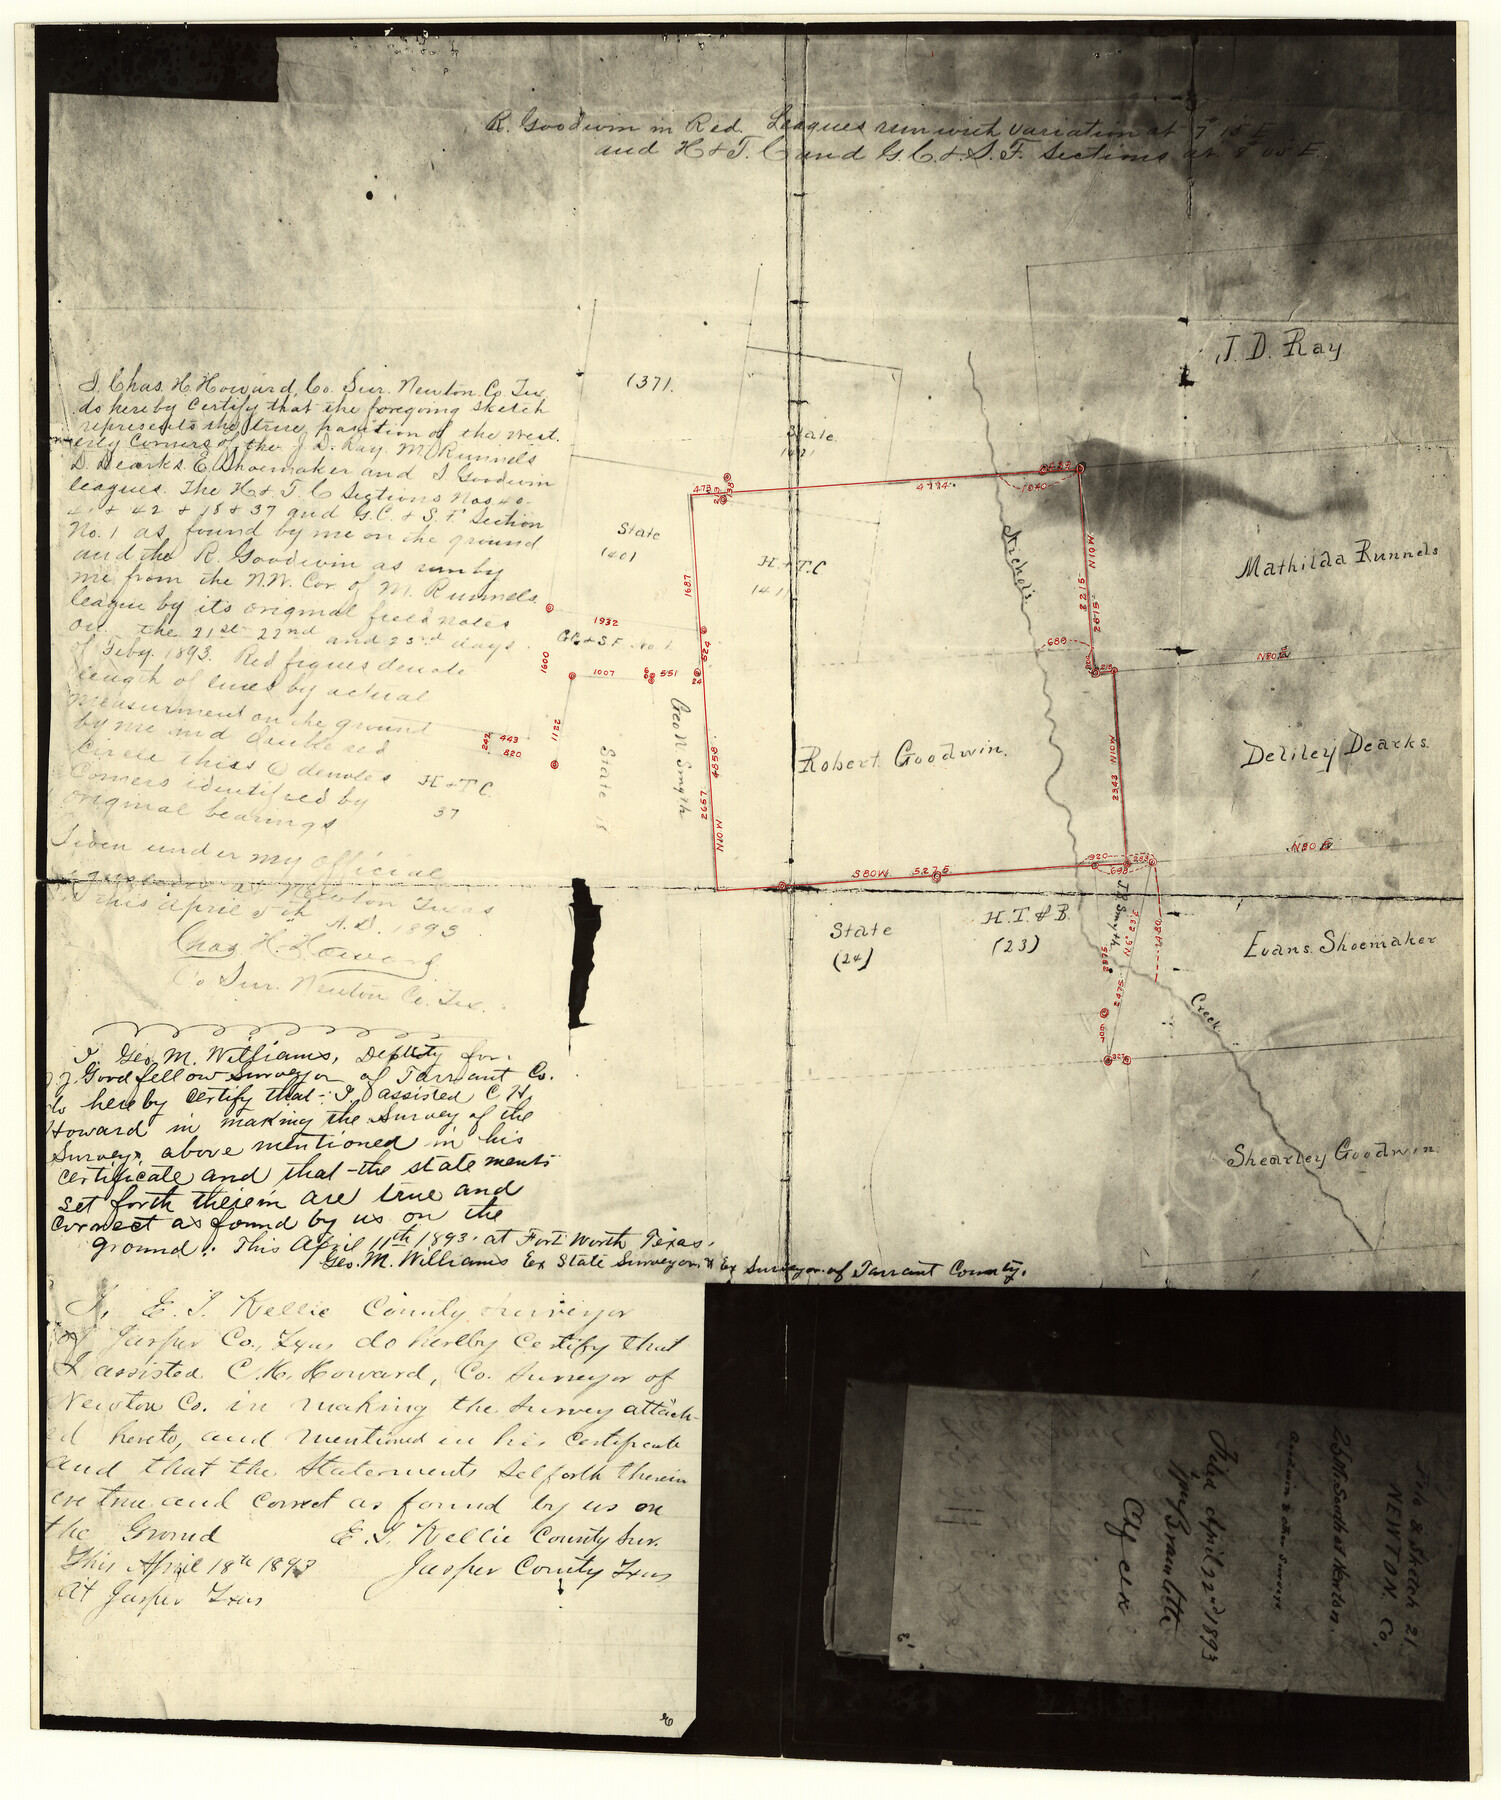 R. Goodwin in Red. Leagues run with variation at 7° 15 E
and H & T. C and G. C. & S. F. Sections at 8° 05 E.
J. D. Ray
(37).
State
State
(40)
H. & T. C
(41)
Mathilda Runnels
Nichols
4774
1040
473
138
1687
2215
2815
N10W
688
N80E
1932
G.C. & S.F. No 1.
1600
1007
551
524
24
1122
242
443
820
H & T C.
37
State 18
Geo N Smyth
4858
2657
N10W
Robert Goodwin.
N10W
2343
Deliley Dearks.
N80E
920
283
698
S80W.
5275
State
(24)
H. T. & B.
(23)
J. R Smyth
2875
2475
400
327
Evans. Shoemaker
Creek
Shearley Goodwin.
I, Chas. H. Howard, Co. Sur. Newton Co. Tex,
do hereby Certify that the foregoing sketch
represents the true position of the West-
erly Corners of the J. D. Ray. M. Runnels
D. Dearks. E. Shoemaker and S Goodwin
leagues. The H & T. C Sections Nos 40-
41 & 42 & 18 & 37 and G.C. & S. F. Section
No. 1 as found by me on the ground
and the R. Goodwin as run by
me from the N.W. Cor. of M. Runnels
league by its original field notes
on the 21st 22nd and 23rd days
of Feby. 1893. Red figues denote
length of lines by actual
measurment on the ground
by me and double red
circle thiss ⊙ denotes
Corners identified by
original bearings
Given under my official
at Newton Texas
this April 5th A.D. 1893
Chas. H. Howard
Co Sur. Newton Co. Tex.
I, Geo. M. Williams, Deputy for
J. J. Goodfellow Surveyor of Tarrant Co.
do hereby certify that - I assisted C H.
Howard in making the Survey of the
Surveys above mentioned in his
certificate and that - the statements
set forth therein are true and
correct as found by us on the
ground. This April 11th 1893. at Fort Worth Texas.
Geo. M. Williams Ex State Surveyor & Ex Surveyor of Tarrant County.
I, E. I. Kellie County Surveyor
of Jasper Co., Texas do hereby Certify that
I assisted C. H. Howard, Co. Surveyor of
Newton Co. in making the Survey attach-
ed hereto, and mentioned in his Certificate
and that the Statements Set forth therein
are true and Correct as found by us on
the Ground E. I. Kellie County Sur.
This April 18th 1893 Jasper County Texas
at Jasper Texas
File & Sketch 21.
NEWTON. Co.
25 M. South of Newton.
Goodwin & other Surveys
Filed April 22nd 1893
Wm Bramlitte
Clf clk